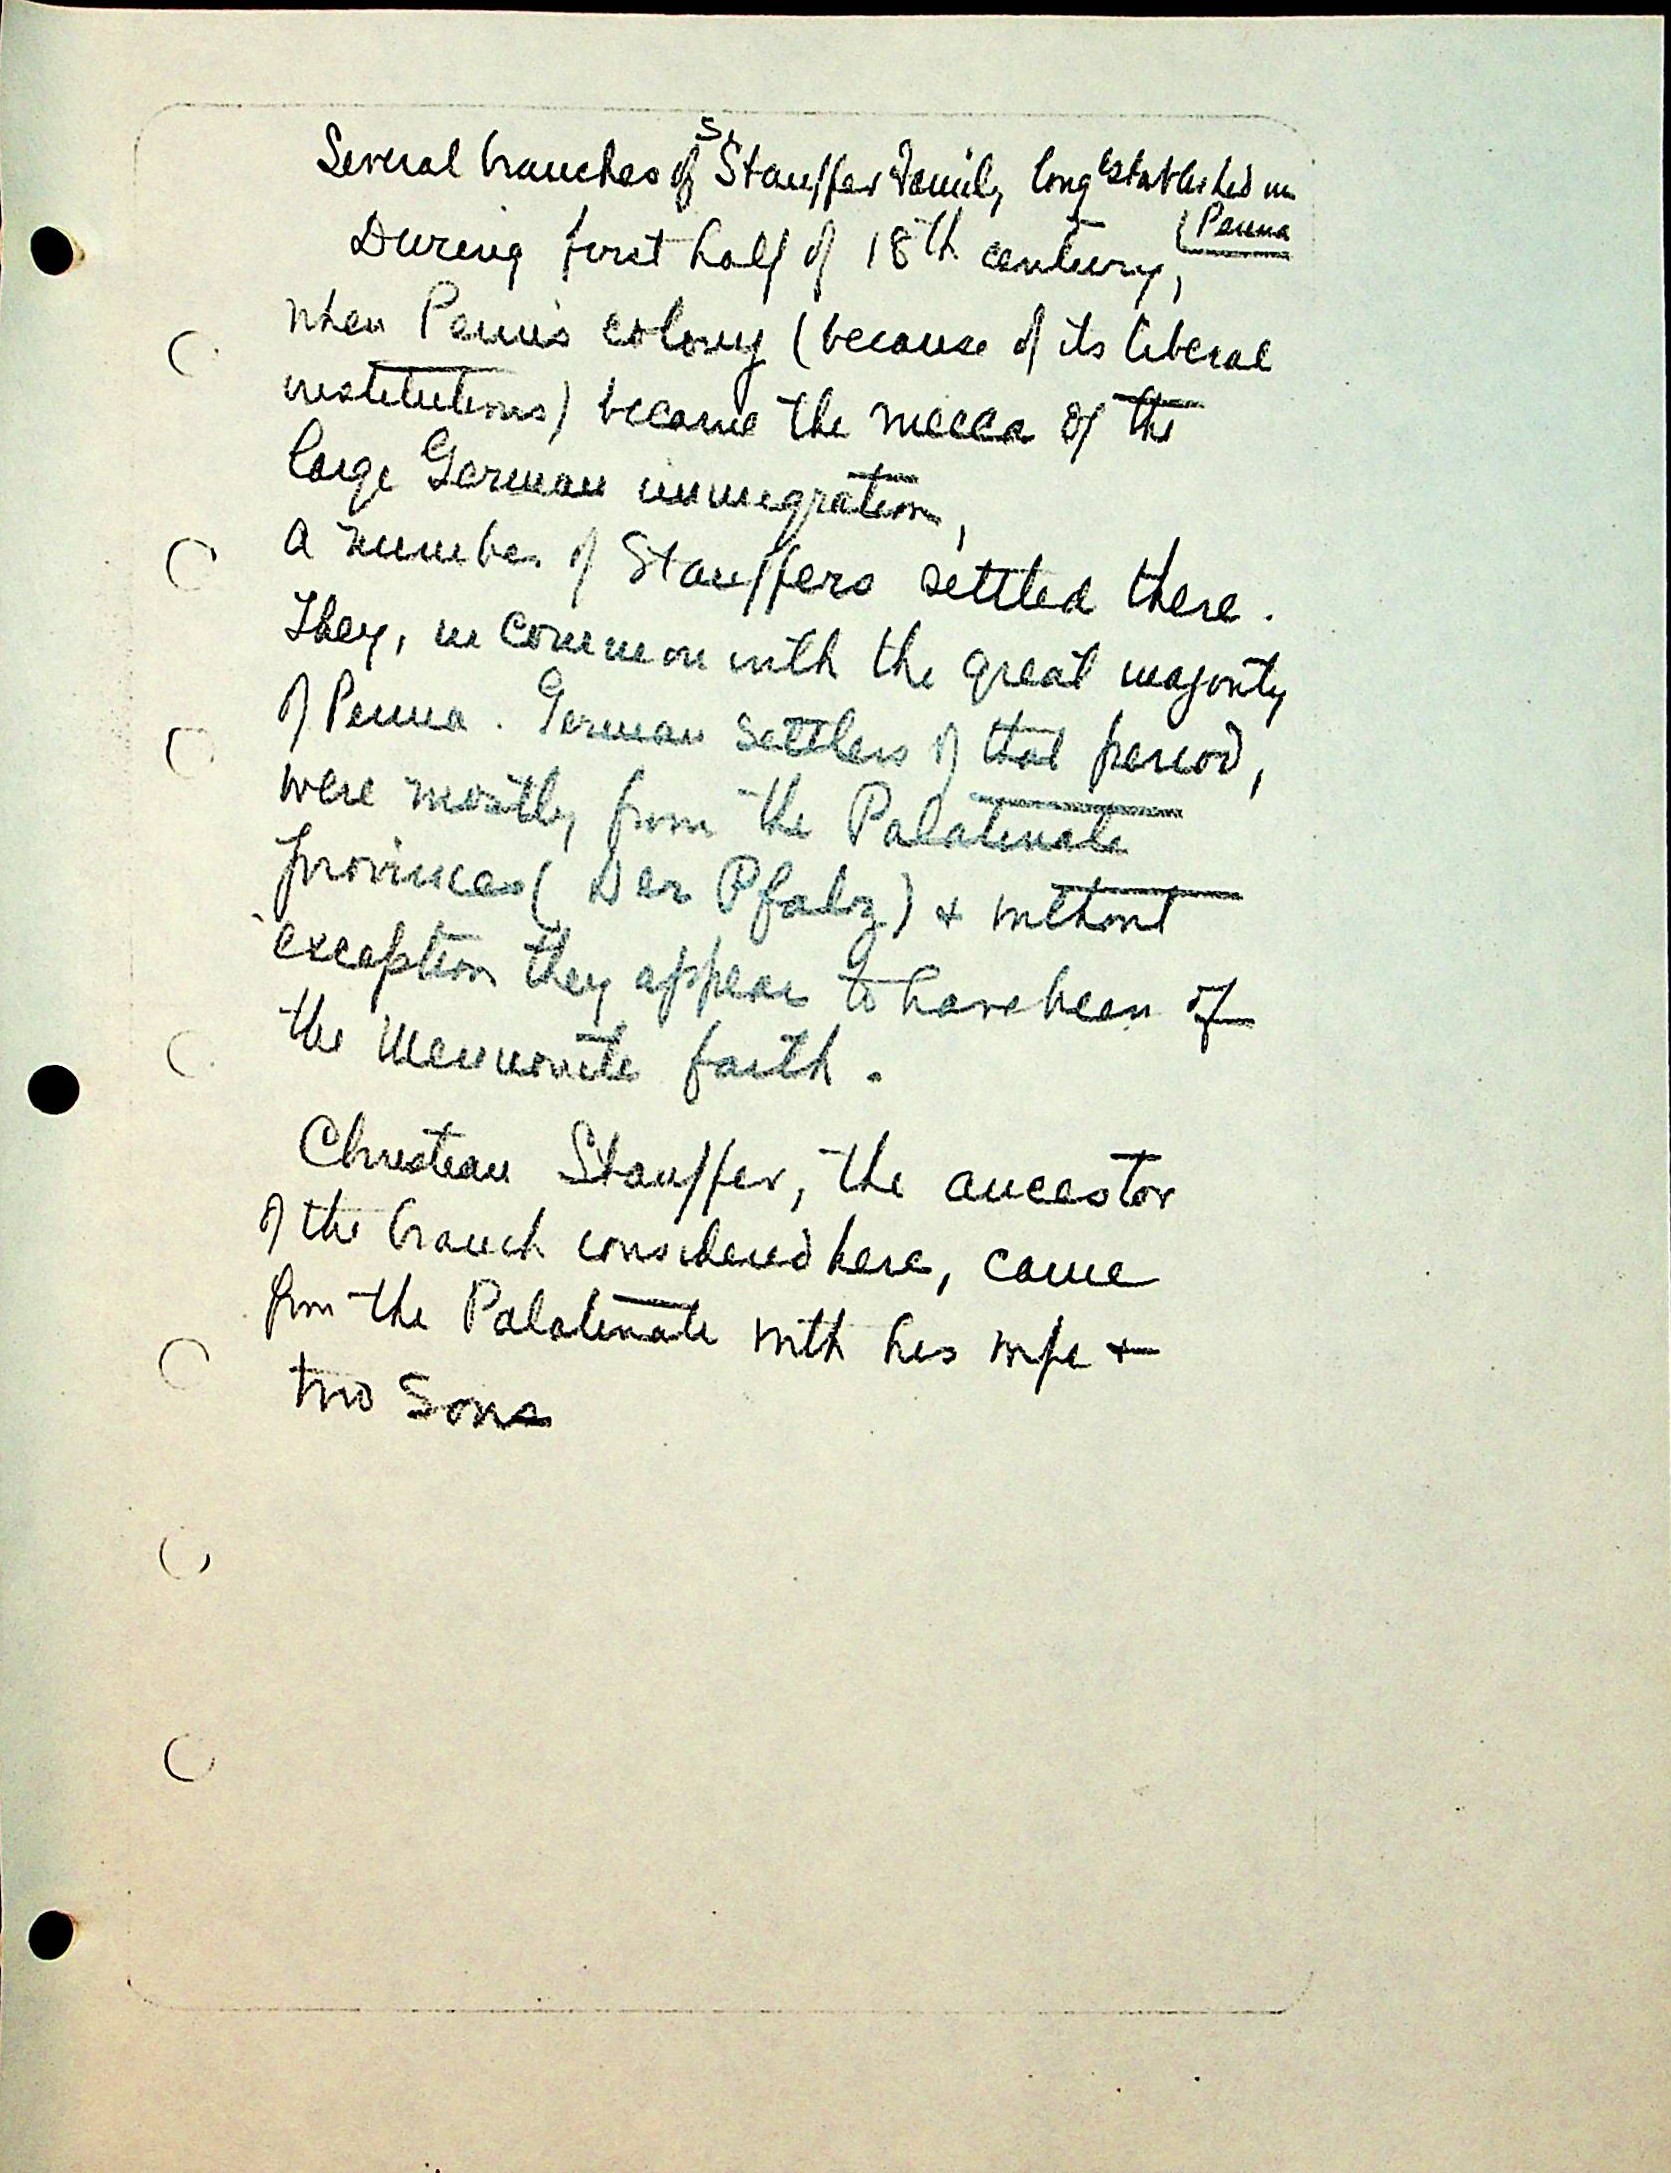 Several branches of Stauffer Family long established in
Penna
During first half of 18th century,
when Penn's colony (because of its liberal
institutions) became the mecca of the
large German immigration,
a number of Stauffers settled there.
They, in common with the great majority
of Penna. German settlers of that period,
were mostly from the Palatinate
provinces (Der Pfalz) & without
exception they appear to have been of
the Mennonite faith.
Christian Stauffer, the ancestor
of the branch considered here, came
from the Palatinate with his wife &
two sons